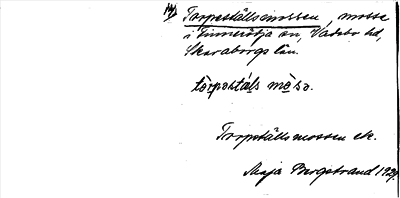 14) Torpställsmossen, mosse
i Finnerödja sn, Vadsbo hd,
Skaraborgs län.
tòrpostäls mòsa.
Torpställsmossen ek.
Maja Bergstrand 1929.